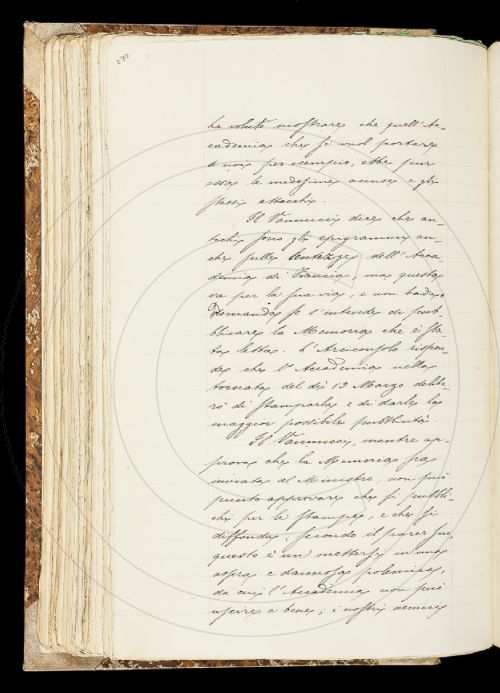 270
ha voluto mostrare che quell'Ac-
cademia che si vuol portare
a noi per esempio, ebbe pur
essa le medesime accuse e gli
stessi attacchi.
Il Vannucci dice che an-
tichi sono gli epigrammi an-
che sulle lentezze dell'Acca-
demia di Francia, ma questa
va per la sua via, e non bada.
Domanda se s'intende di pub-
blicare la Memoria che è sta-
ta letta. L'Arciconsolo rispon-
de che l'Accademia nella
tornata del dì 12 Marzo delibe-
rò di stamparla e di darle la
maggior possibile pubblicità.
Il Vannucci, mentre ap-
prova che la Memoria sia
inviata al Ministro, non può
punto approvare che si pubbli-
chi per le stampe, e che si
diffonda; secondo il parer suo,
questo è un mettersi in una
aspra e dannosa polemica,
da cui l'Accademia non può
uscire a bene; i nostri nemici